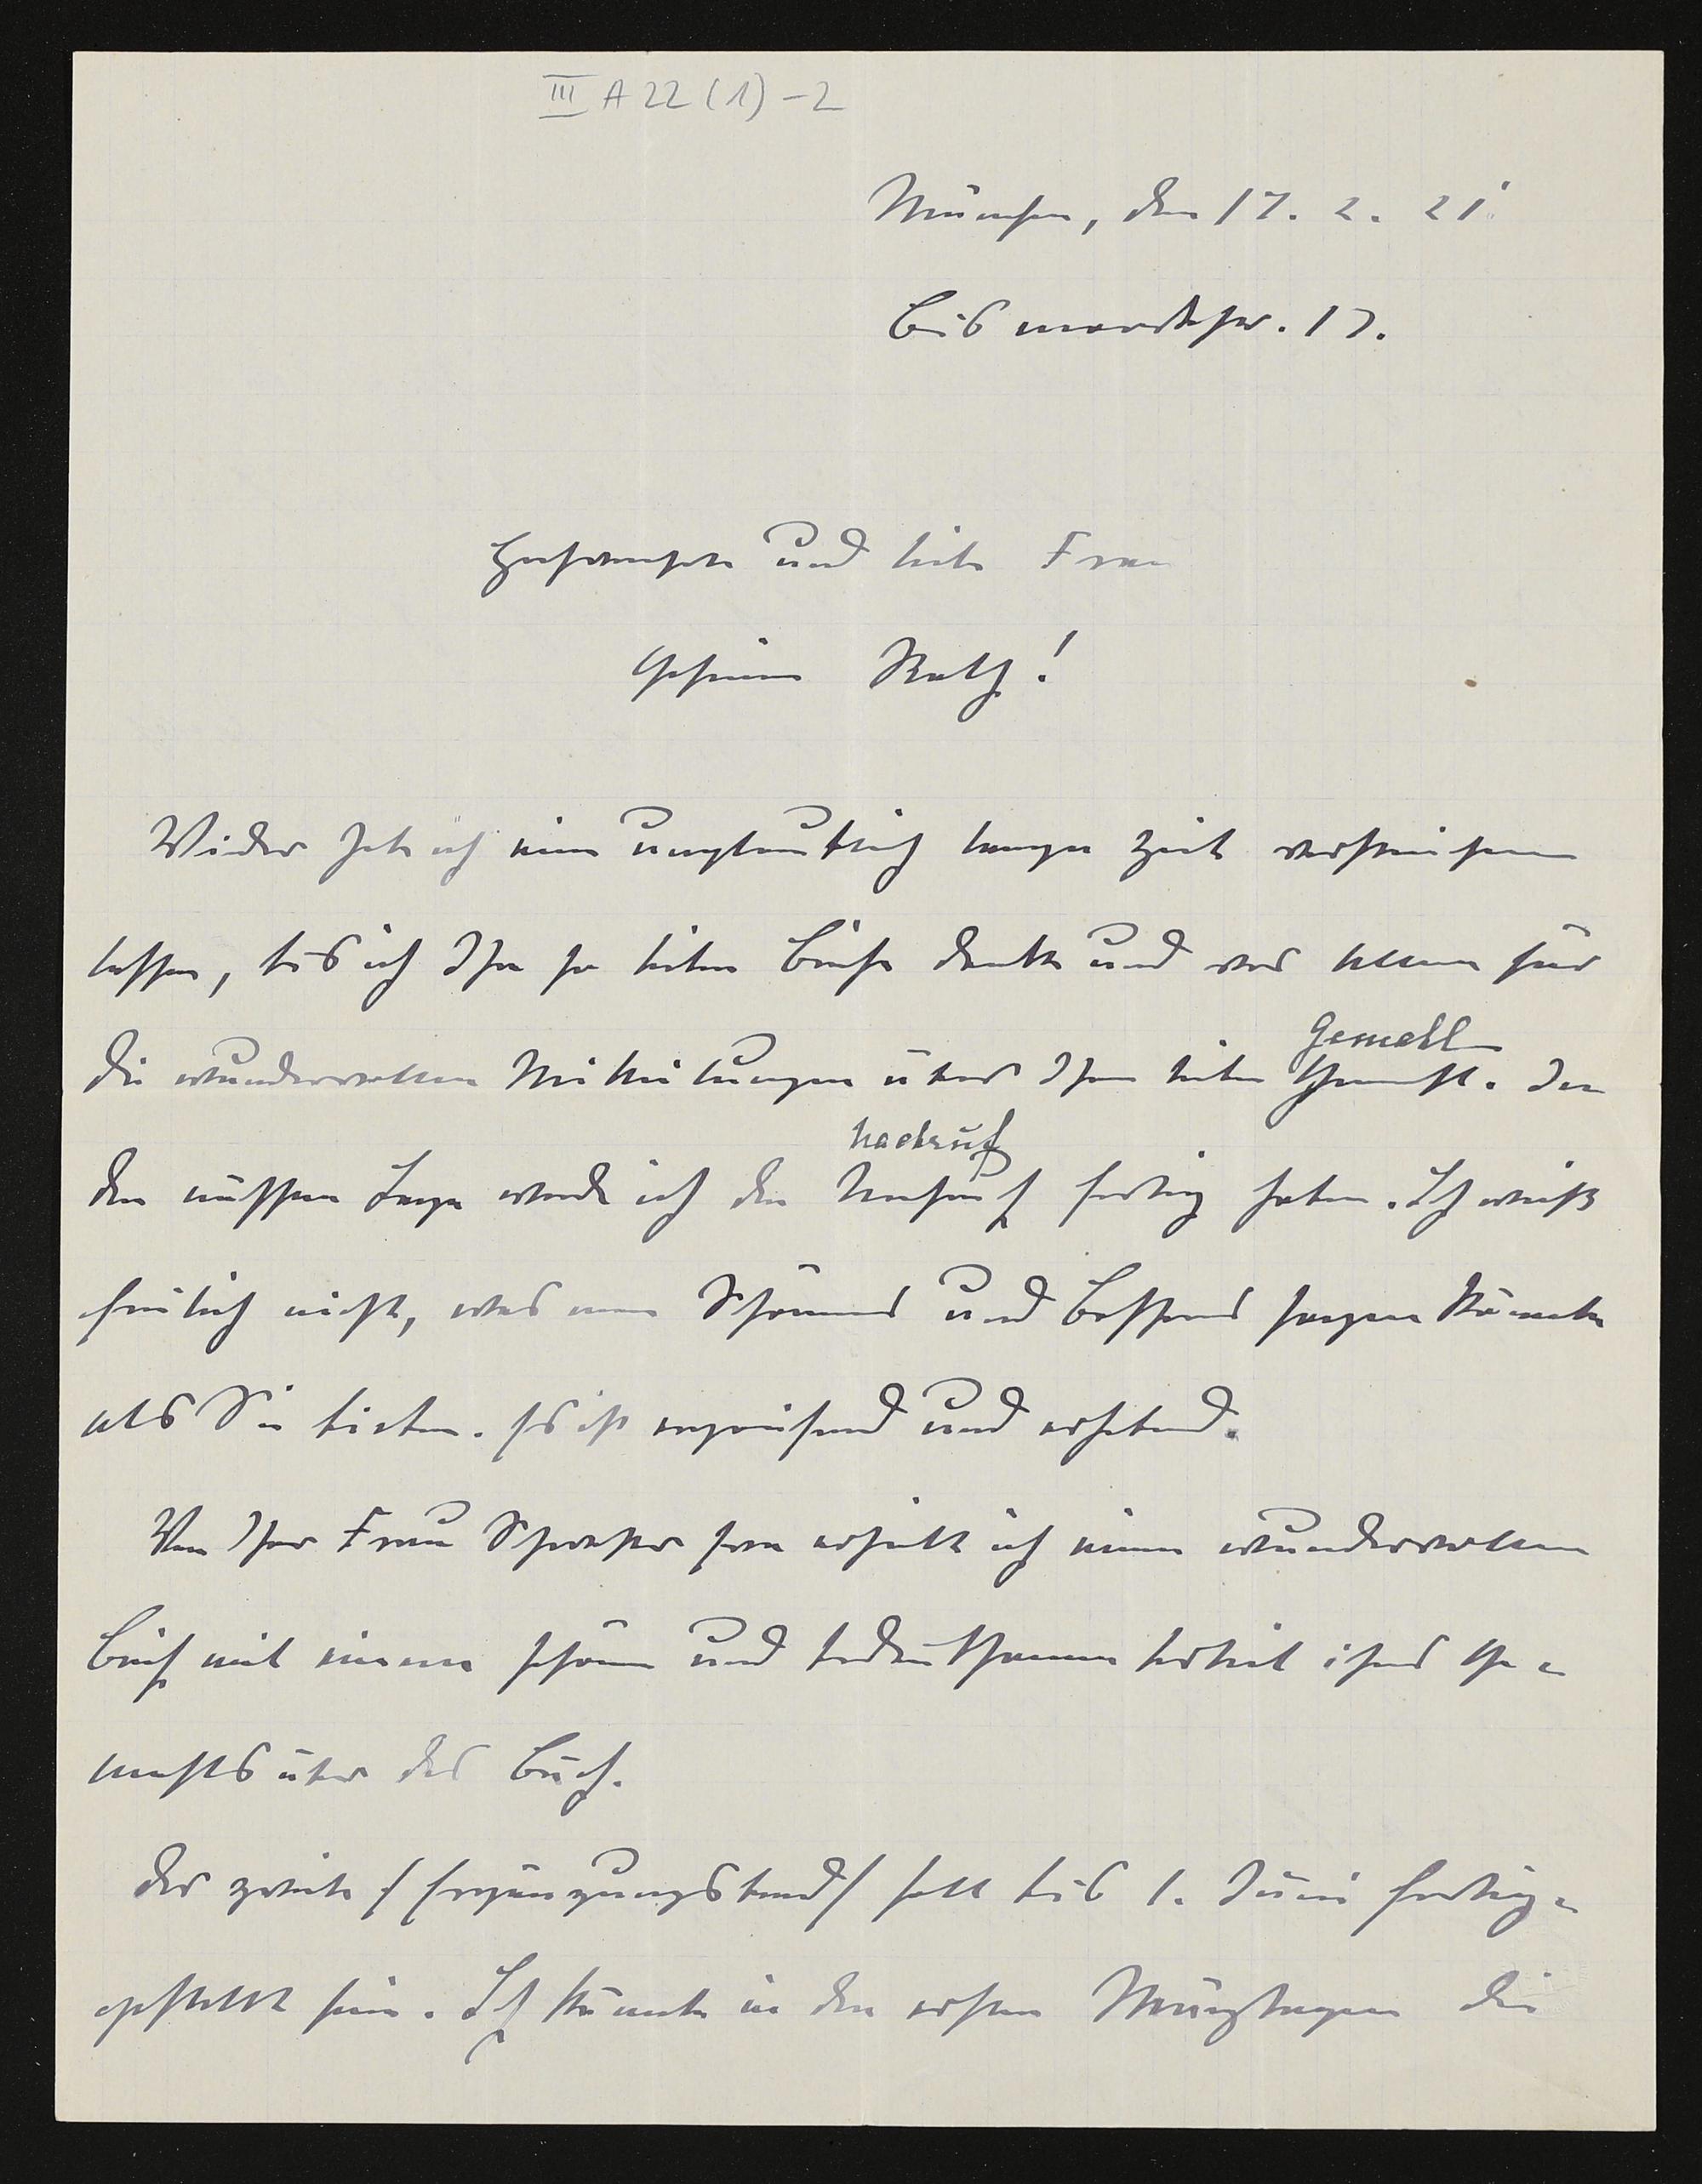 III A 22 (1) - 2
München, den 17. 2. 21.
Bismarckstr. 17.
Hochverehrte und liebe Frau
Geheime Rath!
Wieder habe ich eine unglaublich lange Zeit verstreichen
lassen, bis ich Ihre so lieben Briefe danke und vor allem für
die wundervollen Mitteilungen über Ihren lieben Gemahl. In
Gemahl
den nächsten Tagen werde ich den Nachruf fertig haben. Ich weiß
Nachruf
freilich nicht, was man Schönres und Bessres sagen könnte
als Sie bieten. Es ist ergreifend und erhebend.
Von Ihrer Frau Schwester erhielt ich einen wundervollen
Brief mit einem schönen und bedeutsamen Urteil ihres Ge-
mahls über das Buch.
Der zweite / Ergänzungsband / soll bis 1. Juni fertig-
gestellt sein. Ich könnte in den ersten Märztagen die